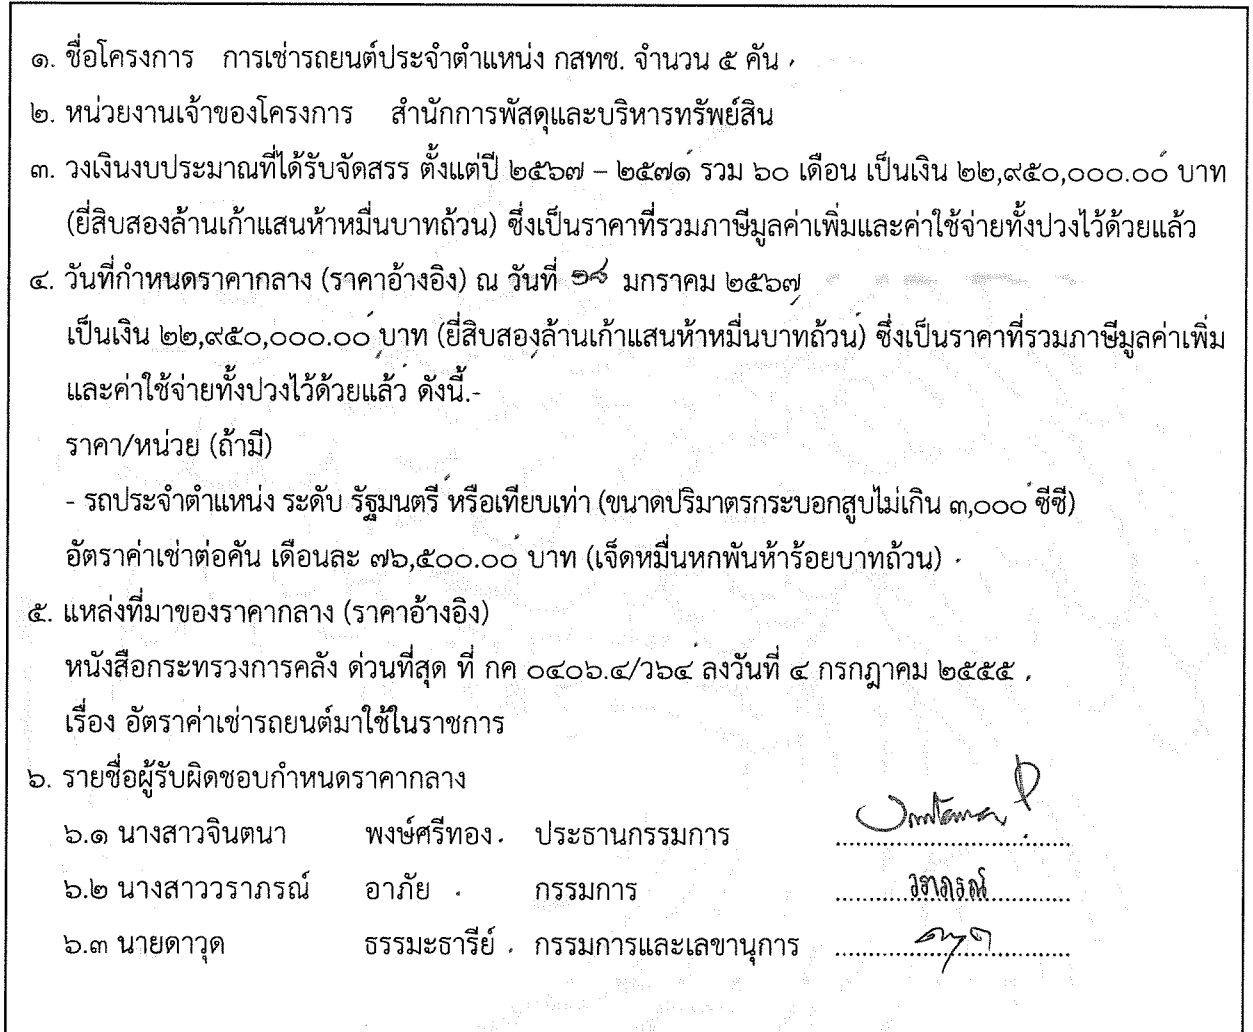 ๑. ชื่อโครงการ การเช่ารถยนต์ประจำตำแหน่ง กสทช. จำนวน ๕ คัน
๒. หน่วยงานเจ้าของโครงการ สำนักการพัสดุและบริหารทรัพย์สิน
๓. วงเงินงบประมาณที่ได้รับจัดสรร ตั้งแต่ปี ๒๕๖๗ – ๒๕๗๑ รวม ๖๐ เดือน เป็นเงิน ๒๒,๙๕๐,๐๐๐.๐๐ บาท
(ยี่สิบสองล้านเก้าแสนห้าหมื่นบาทถ้วน) ซึ่งเป็นราคาที่รวมภาษีมูลค่าเพิ่มและค่าใช้จ่ายทั้งปวงไว้ด้วยแล้ว
๔. วันที่กำหนดราคากลาง (ราคาอ้างอิง) ณ วันที่ ๑๘ มกราคม ๒๕๖๗
เป็นเงิน ๒๒,๙๕๐,๐๐๐.๐๐ บาท (ยี่สิบสองล้านเก้าแสนห้าหมื่นบาทถ้วน) ซึ่งเป็นราคาที่รวมภาษีมูลค่าเพิ่ม
และค่าใช้จ่ายทั้งปวงไว้ด้วยแล้ว ดังนี้.-
ราคา/หน่วย (ถ้ามี)
- รถประจำตำแหน่ง ระดับ รัฐมนตรี หรือเทียบเท่า (ขนาดปริมาตรกระบอกสูบไม่เกิน ๓,๐๐๐ ซีซี)
อัตราค่าเช่าต่อคัน เดือนละ ๗๖,๕๐๐.๐๐ บาท (เจ็ดหมื่นหกพันห้าร้อยบาทถ้วน)
๕. แหล่งที่มาของราคากลาง (ราคาอ้างอิง)
หนังสือกระทรวงการคลัง ด่วนที่สุด ที่ กค ๐๔๐๖.๔/ว๖๔ ลงวันที่ ๔ กรกฎาคม ๒๕๕๕
เรื่อง อัตราค่าเช่ารถยนต์มาใช้ในราชการ
๖. รายชื่อผู้รับผิดชอบกำหนดราคากลาง
๖.๑ นางสาวจินตนา พงษ์ศรีทอง ประธานกรรมการ
๖.๒ นางสาววราภรณ์ อาภัย กรรมการ วราภรณ์
๖.๓ นายดาวุด ธรรมะธารีย์ กรรมการและเลขานุการ